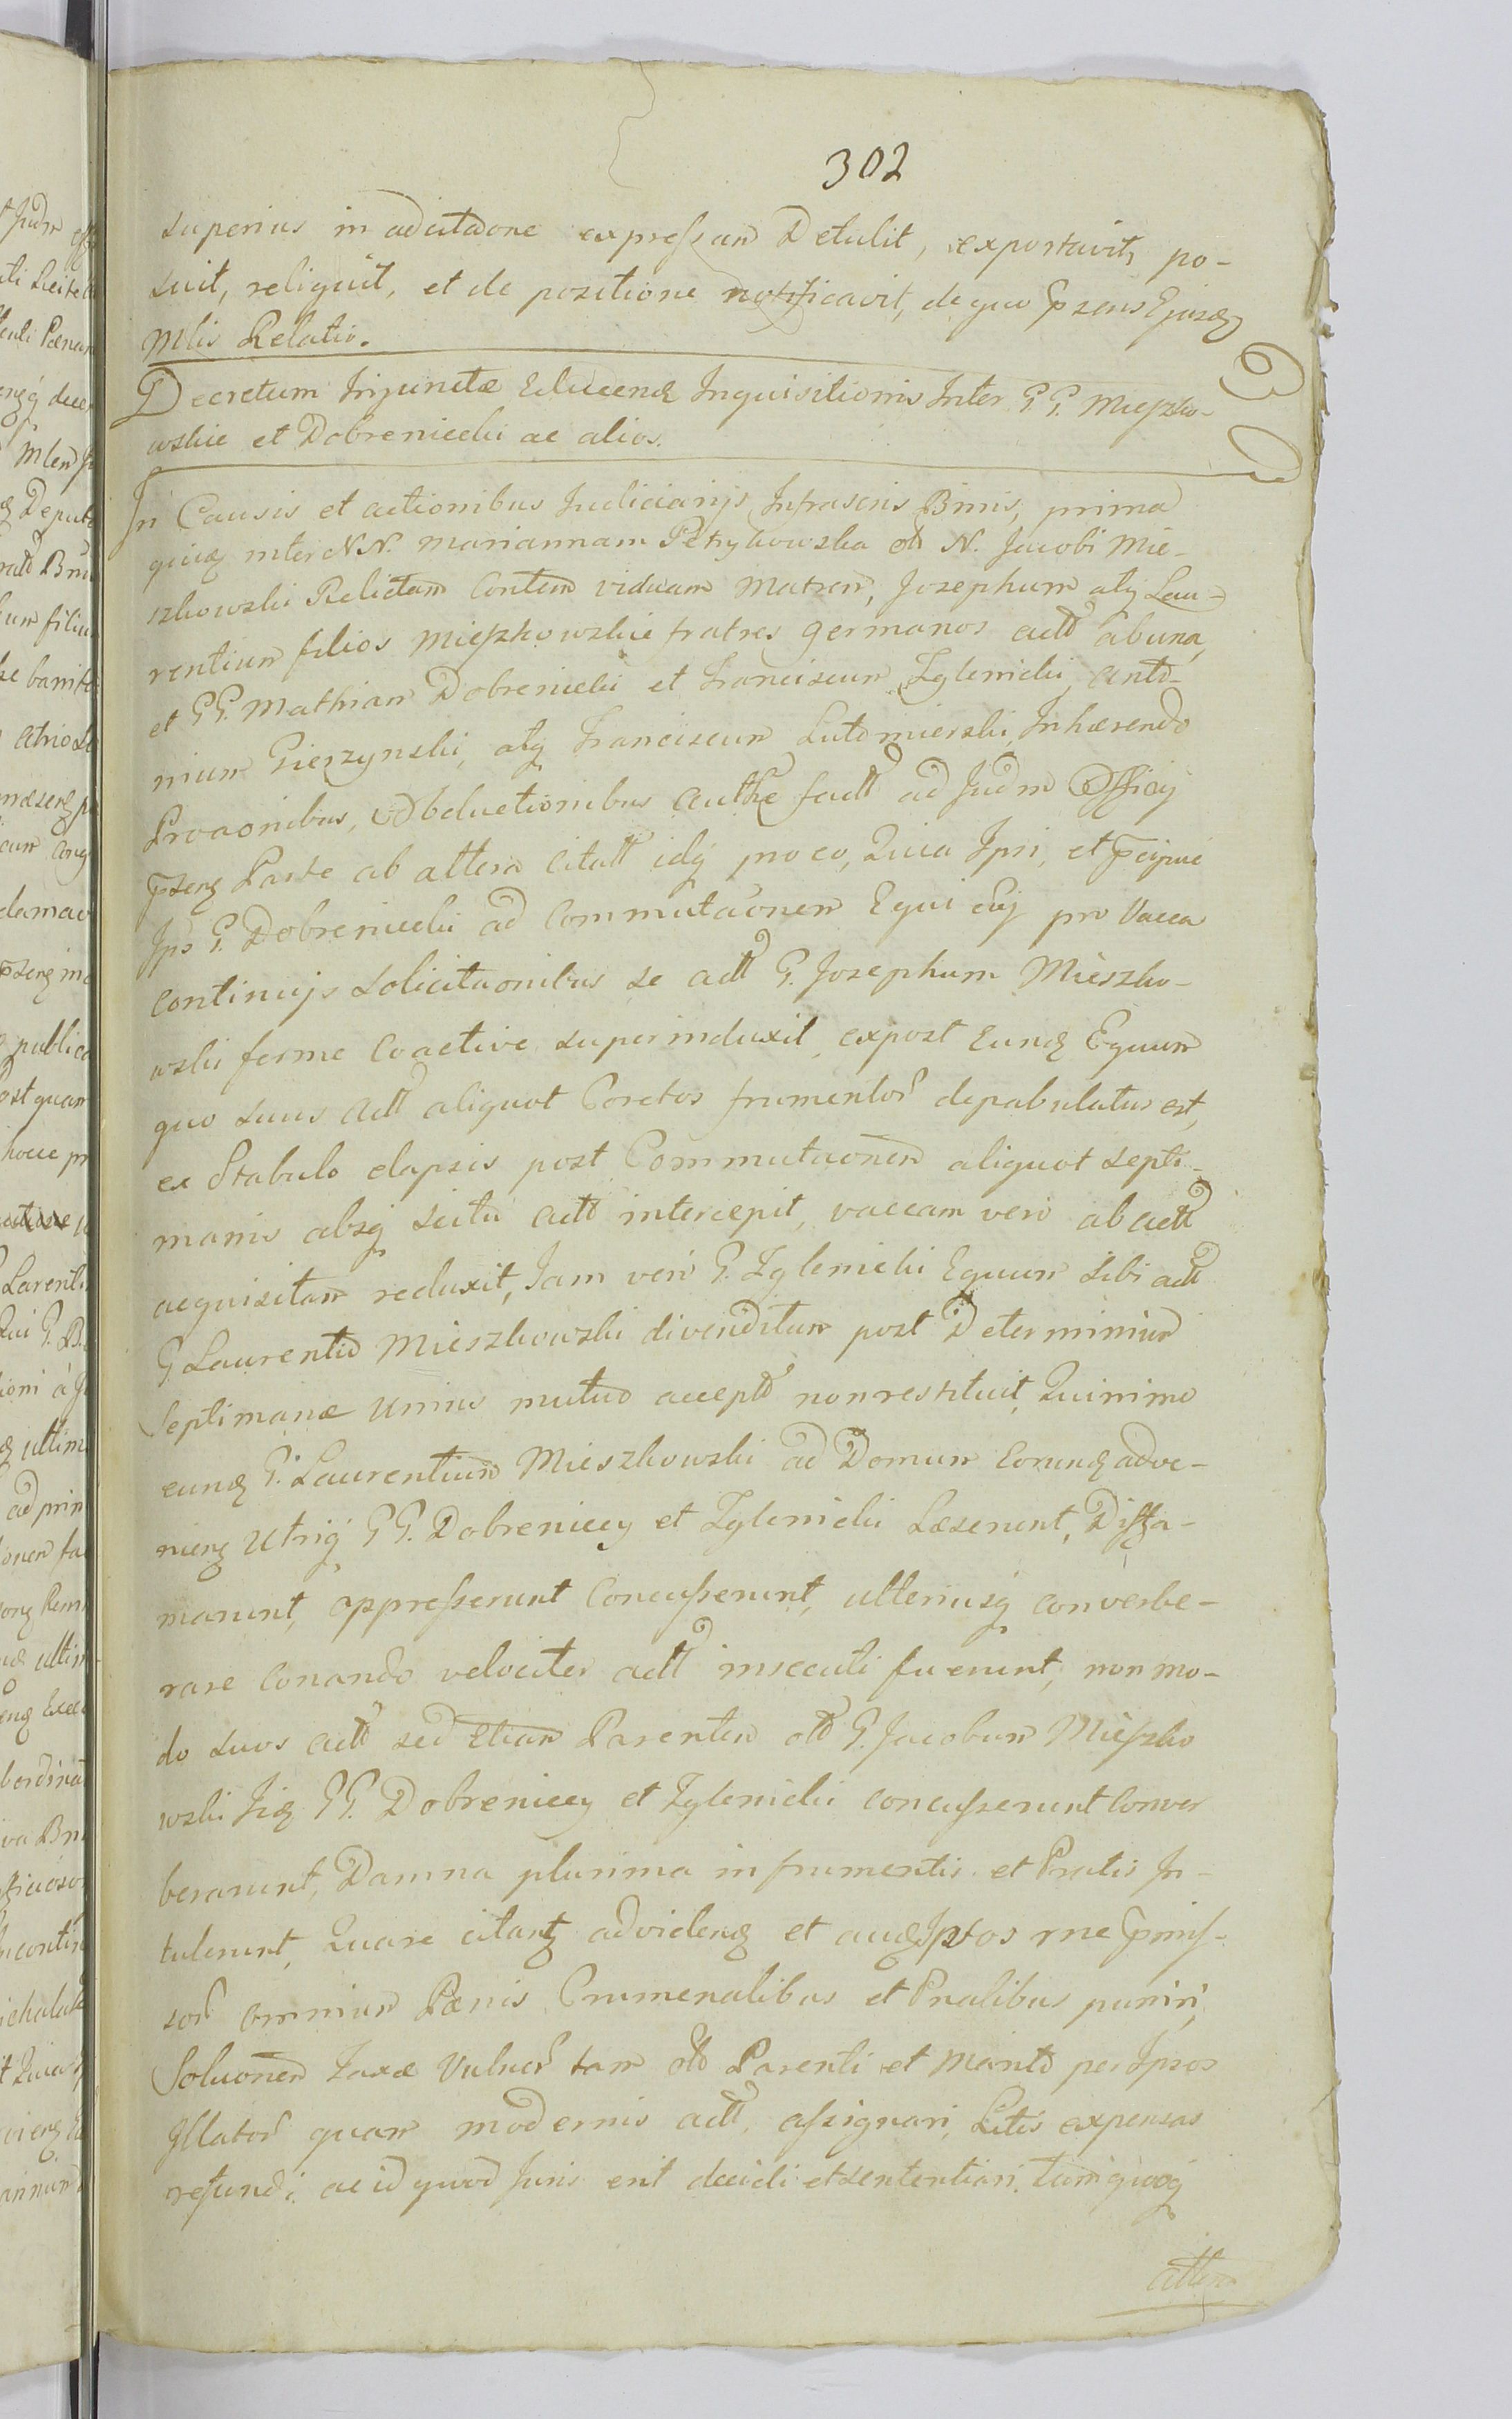 302
superius in adcitaone expressam Detulit, exportavit, po-
suit, reliquit, et de positione notificavit, de quo p̃sens Ejusdẽ
Mlis Relatio.
Decretum Injunctæ Educendæ Inquisitionis Inter G G. Mieszko-
wskie et Dobrenieckii ac alios.
In Causis et actionibus Judiciarijs Infrascris Binis, prima
quidẽ inter N.N. Mariannam Petrykowska olĩ N. Jacobi Mie-
szkowski Relictam Contem viduam Matrem, Josephum atq Lau-
rentium filios Mieszkowskie fratres germanos actt ab una,
et G G. Mathiam Dobrenicki et Franciscum Zglenicki, Anto-
nium Gierzynski, atq Franciscum Lutomierski, Inhærendo
Proaonibus, Obductionibus Authe factt ad Judm Officij
p̃senq Parte ab altera Citatt idq pro eo, Quia Ipsi, et p̃cipue
Ips G. Dobrenicki ad Commutaonem Equi Sui pro Vacca
continuijs solicitaonibus se actt G. Josephum Mieszko-
wski ferme Coactive superinduxit, expost eundẽ Equum
quo suus actt aliquot Coretos frumentor depabulatus est,
ex Stabulo elapsis post Commutaonem aliquot septi-
manis absq scitu actt intercepit, vaccam vero ab actt
acquisitam reduxit, Jam vero G. Zglenicki Equum sibi actt
G. Laurentio Mieszkowski divenditum post Determinium
Septimanæ unius mutuo accepto non restituit, Quinimo
eundẽ G. Laurentium Mieszkowski ad Domum Eorundẽ adve-
nienq Utriq G G. Dobreniccy et Zglenicki Læserunt, Diffa-
marunt, oppresserunt Concusserunt, ulteriusq converbe-
rare Conando velociter actt insecuti fuerunt, non mo-
do suos actt sed Etiam Parentem olĩ G. Jacobum Mieszko
wski Jidẽ G G. Dobreniccy et Zglenicki concusserunt Conver
berarunt, Damna plurima in frumentis et Pratis In-
tulerunt, Quare citantq ad videndẽ et audẽ Ipsos rne p̃miss-
sor omnium Pœnis Crumenalibus et Pnalibus puniri,
Soluonem Taxæ Vulner tam olĩ Parenti et Marito per Ipsos
Illator quam modernis actt, assignari, Litis expensas
refundi, ac id quod Juris erit decidi et sententiari. Tum quoq
atten